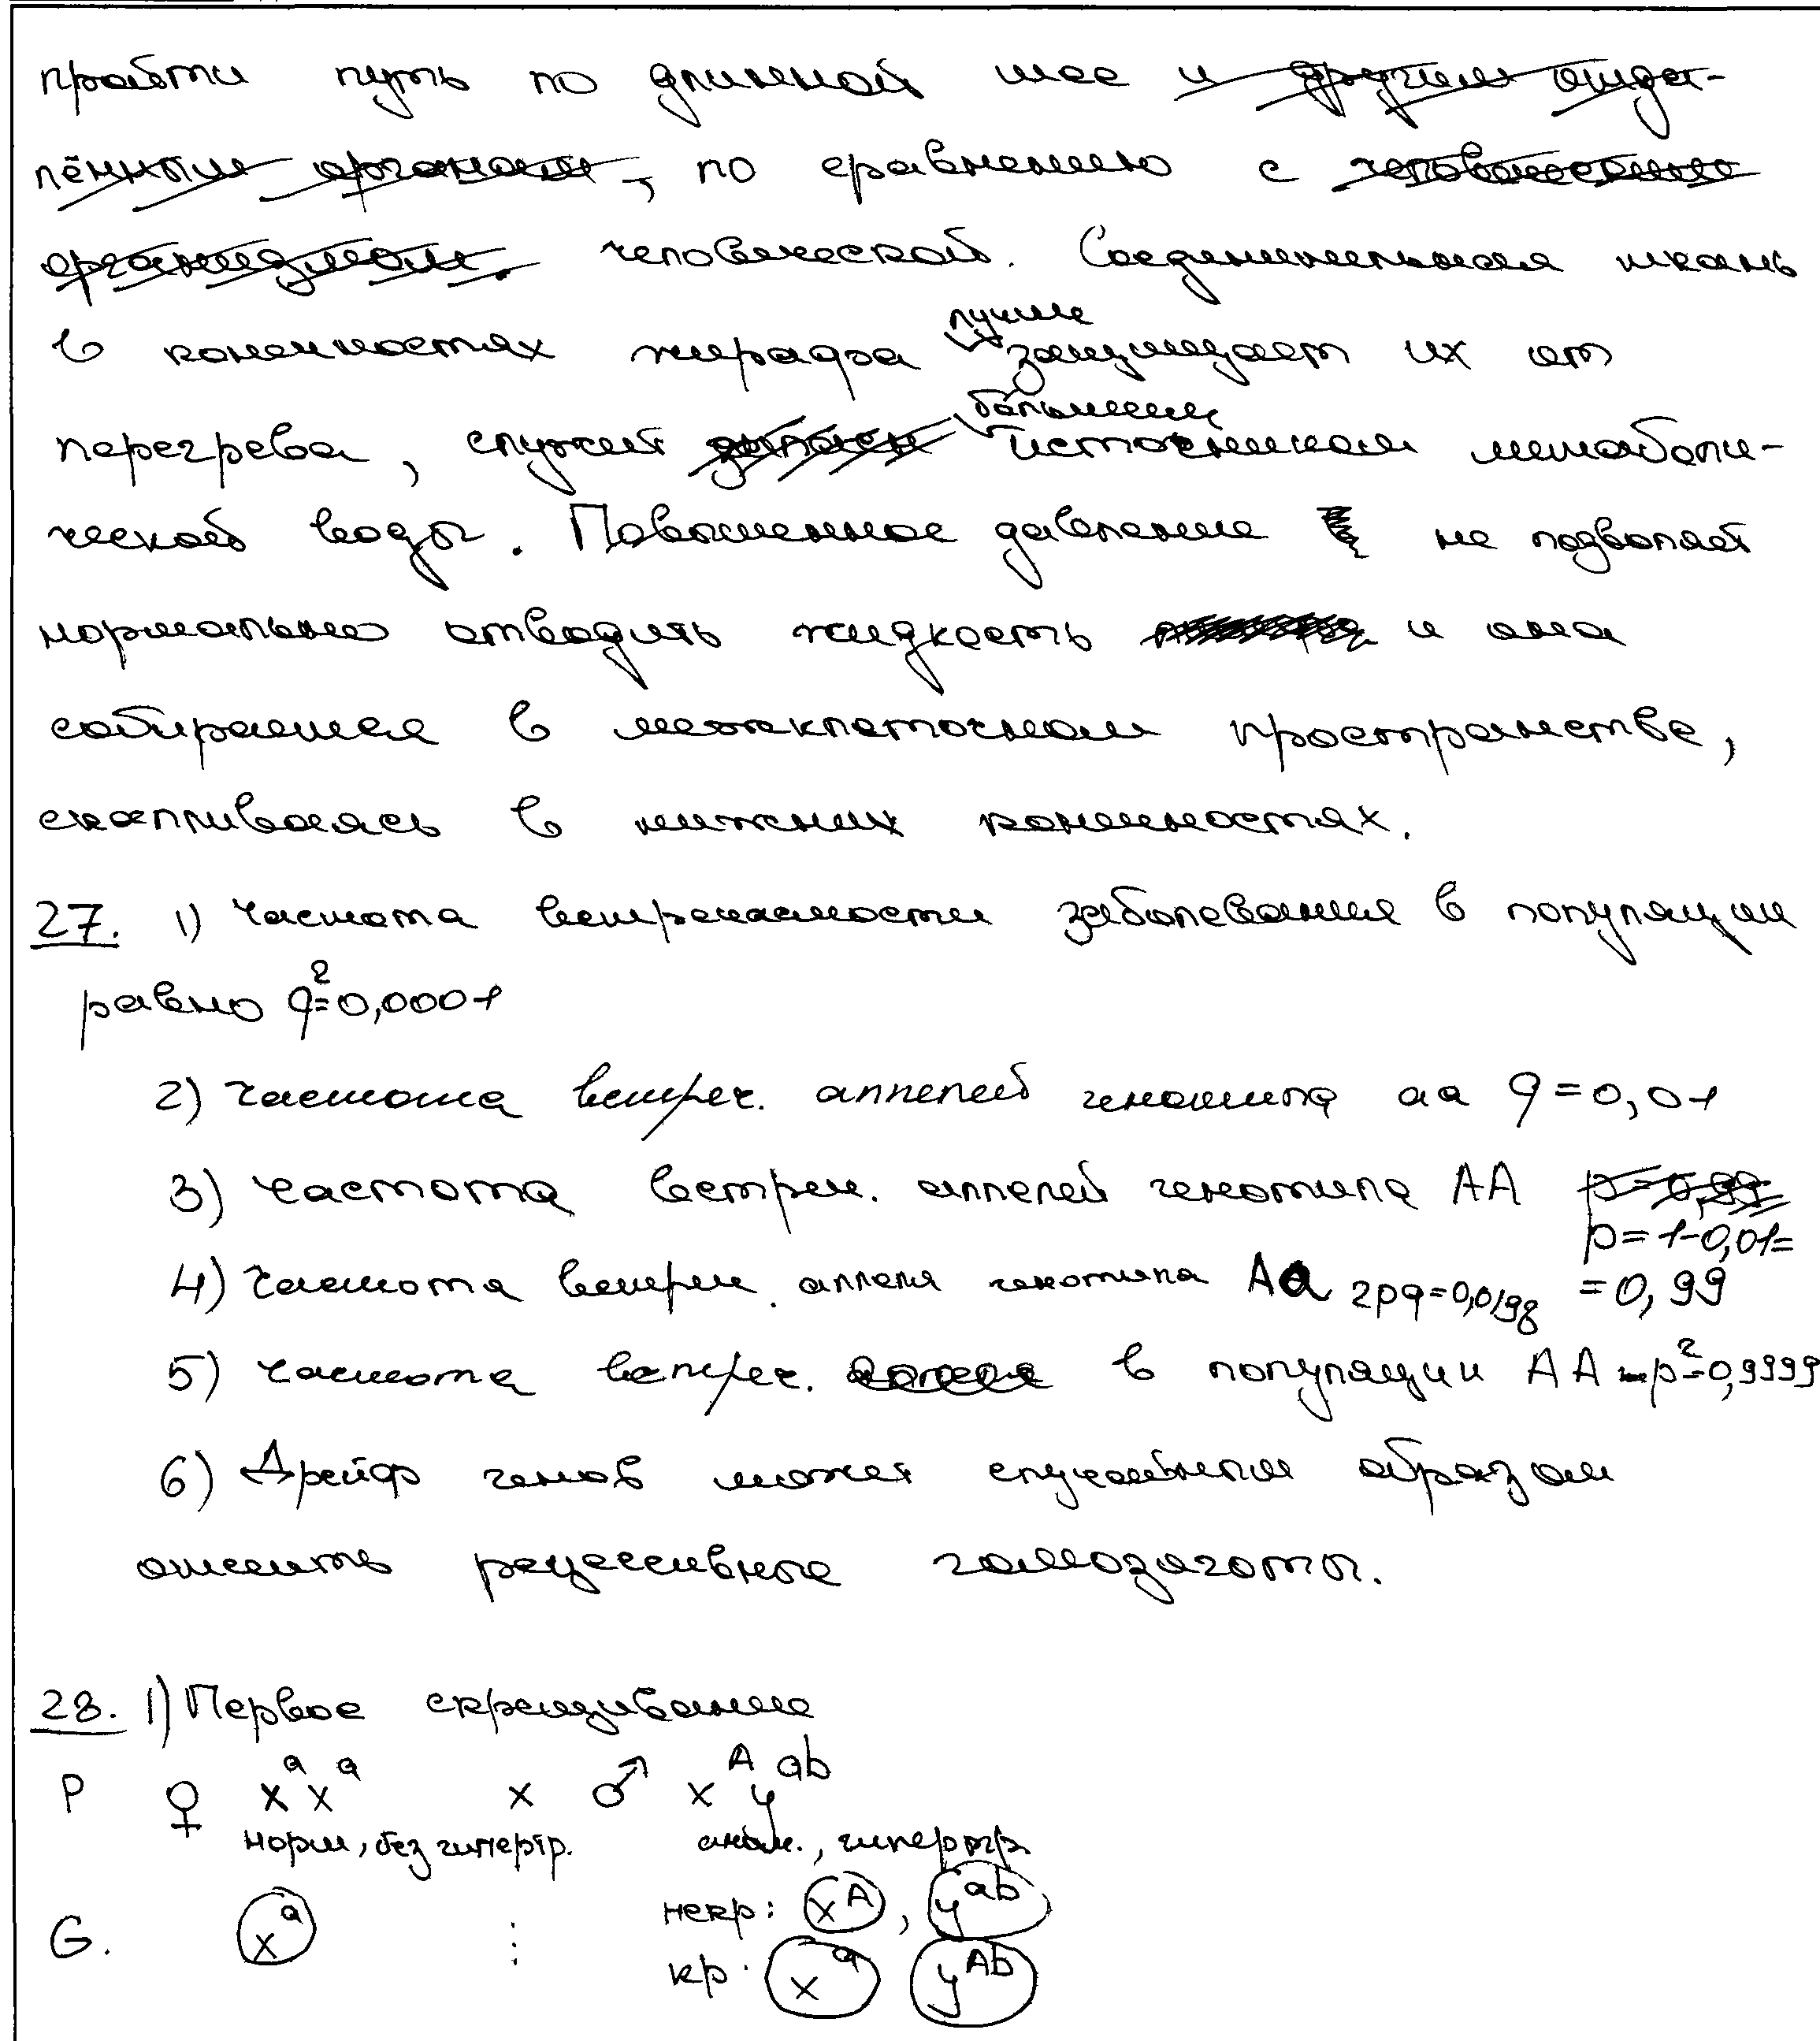 пройти путь по длинной шее и другим отда-
лённым органам, по сравнению с человеческим
организмом. человеческой. Соединительная ткань
в конечностях жирафа лучше защищает их от
перегрева, служит большим источником метаболи-
ческой воды. Повышенное давление не подволяет
нормально отводить жидкость и она
собирается в межклеточном пространстве,
скапливаясь в нижних конечностях.
27. 1) Частота встречаемости заболевания в популяции
равно q²=0,0001
2) Частота встреч. аллелей генотипа аа q=0,01
3) частота встреч. аллелей генотипа АА p=0,99
p=1-0,01=
=0,99
4) Частота встреч. аллеля генотипа Аа 2pq=0,0198
5) Частота встреч. аллеля в популяции АА p²=0,9999
6) Дрейф генов может случайным образом
отсеить рецессивные гомозиготы.
28. 1) Первое скрещивание
P ♀ xᵃxᵃ x ♂ xᴬyᵃᵇ
норм, без гипертр. аном., гипертр
G. xᵃ : некр: xᴬ, yᵃᵇ
кр: xᵃ yᴬᵇ